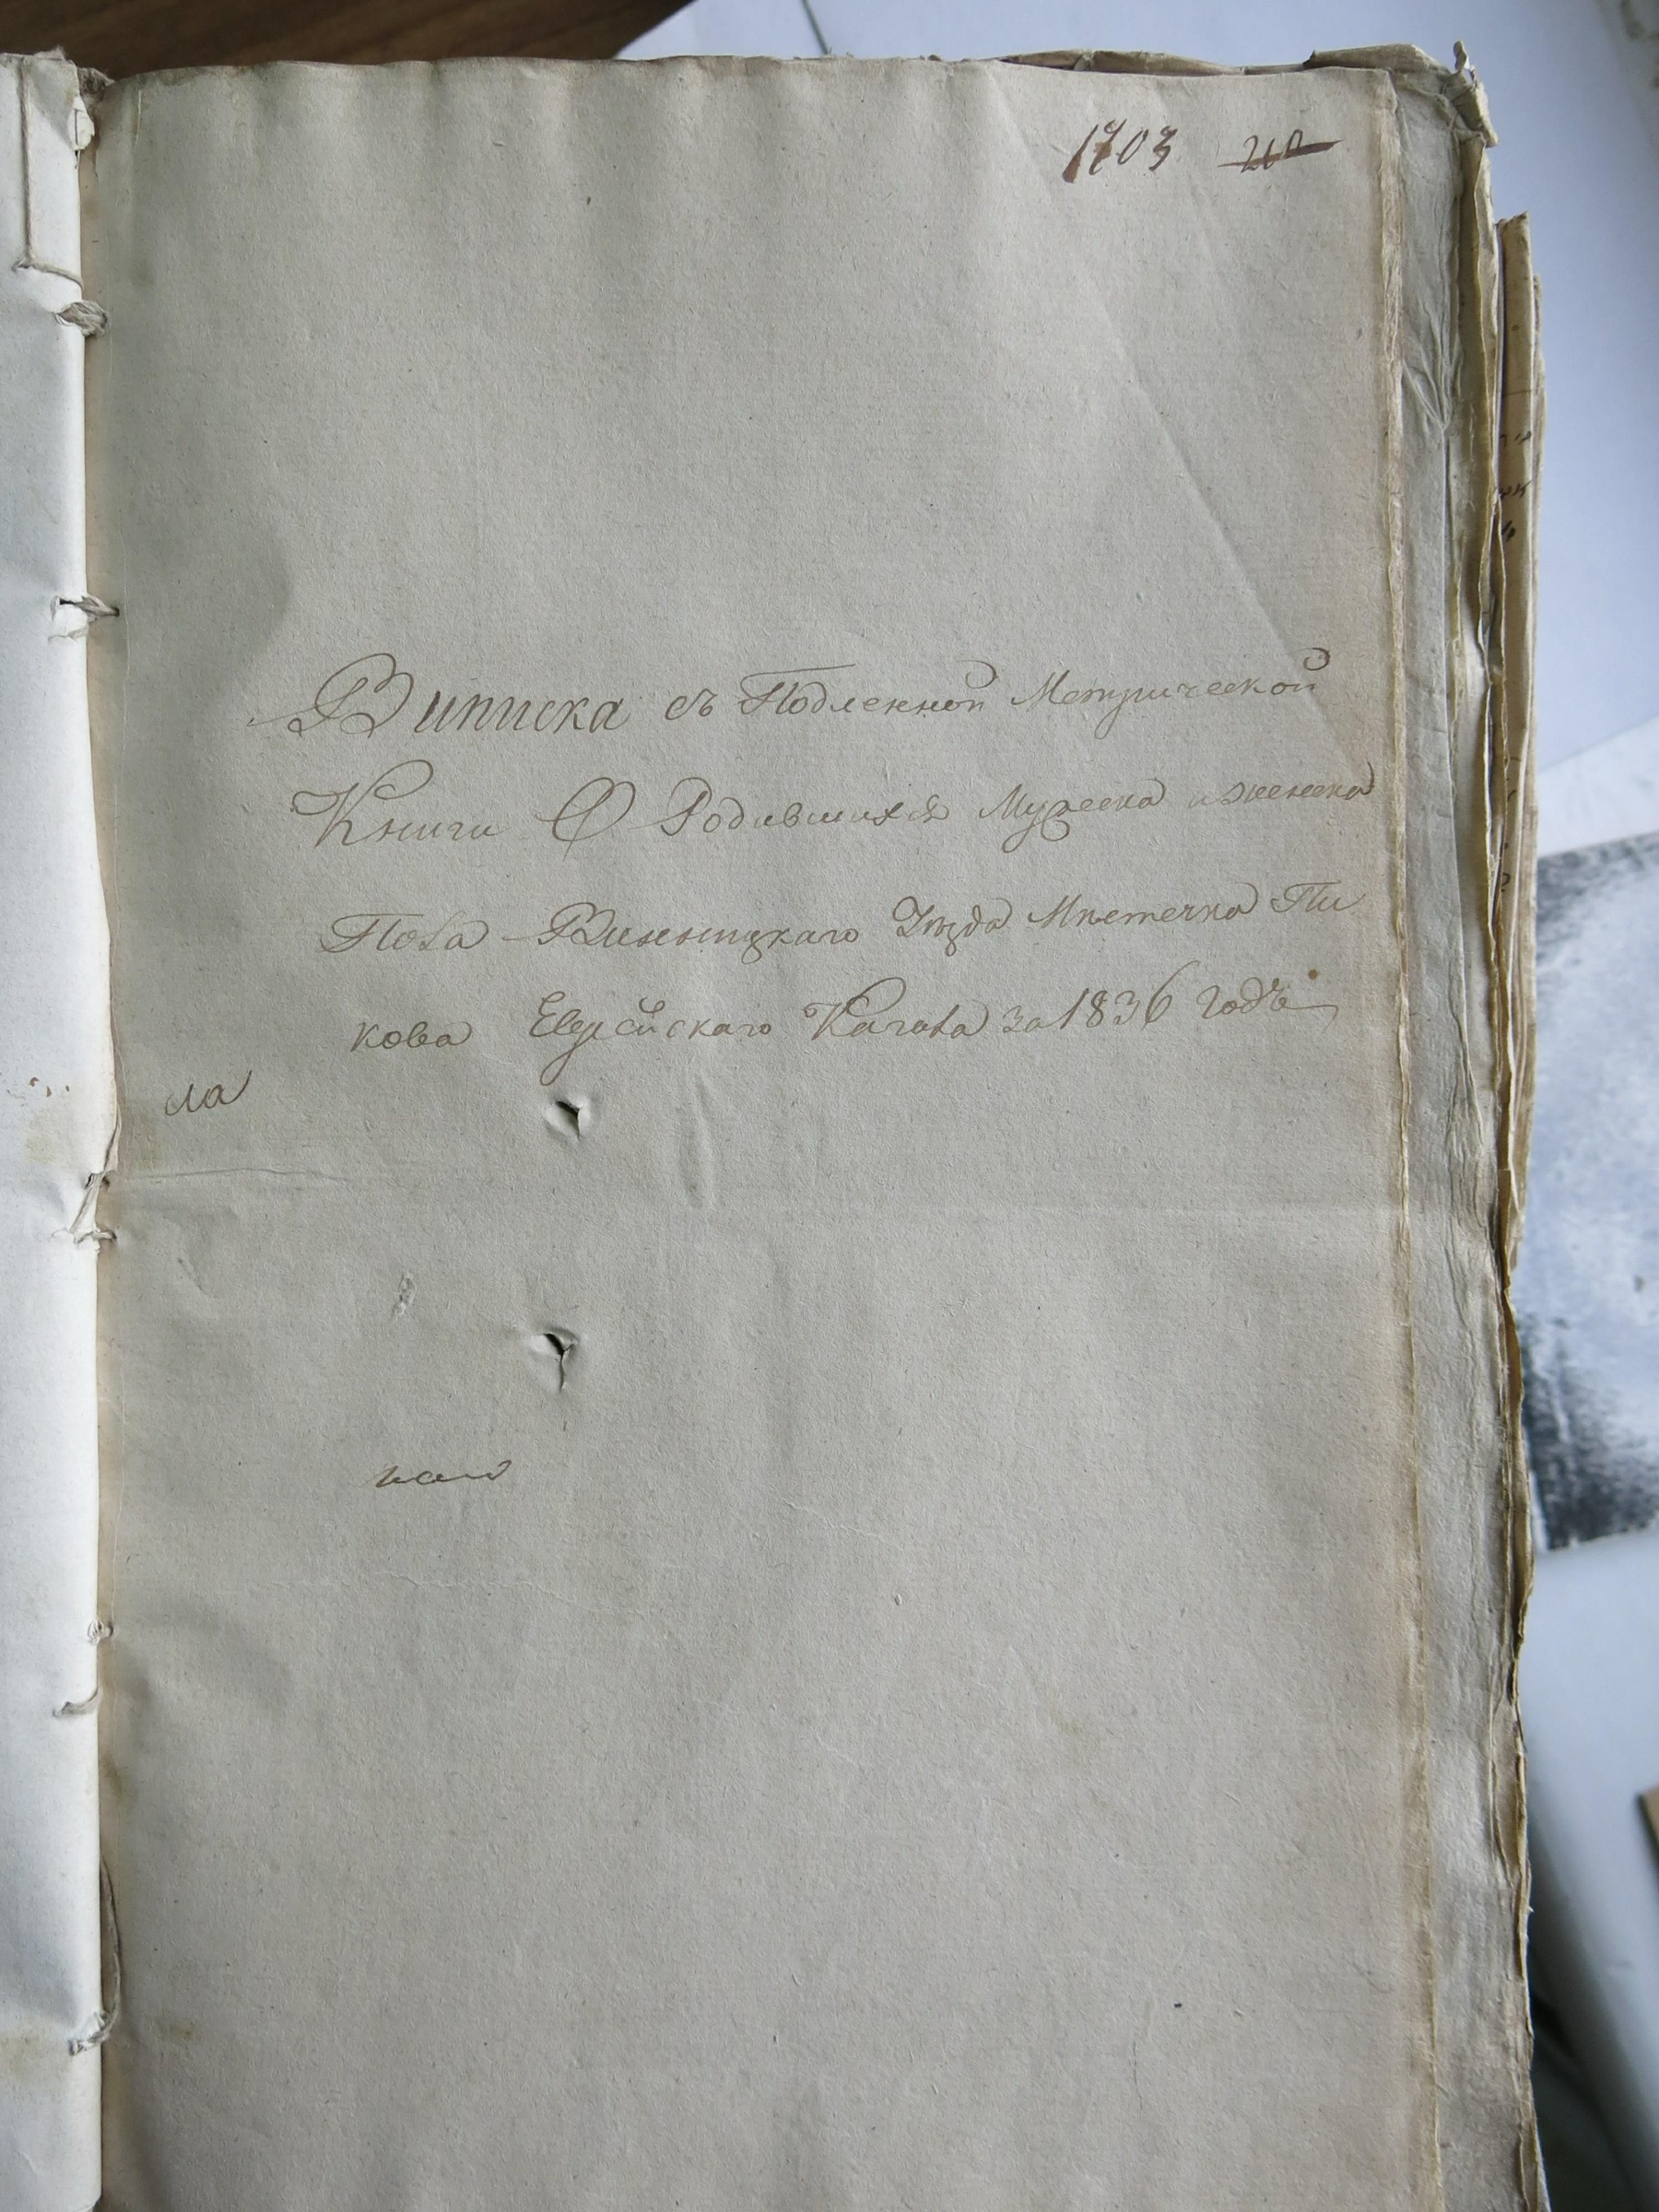 1703
Виписка съ Подленной Метрической
Книги О Родившихся Мужеска и женска
Пола Винницкаго Уѣзда Мѣстечка Пи
кова Еврейскаго Кагала за 1836 годъ
ла